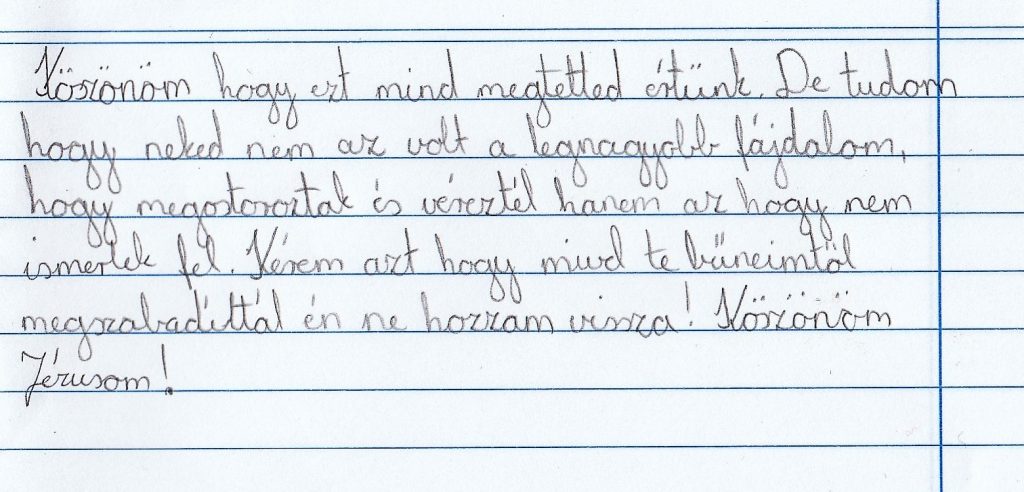 Köszönöm hogy ezt mind megtetted értünk. De tudom
hogy neked nem az volt a legnagyobb fájdalom,
hogy megostoroztak és véreztél hanem az hogy nem
ismertek fel. Kérem azt hogy mivel te bűneimtől
megszabadíttál én ne hozzam vissza! Köszönöm
Jézusom!